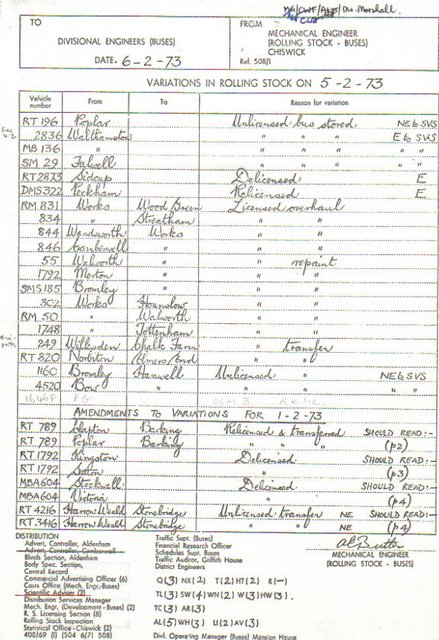 TO
DIVISIONAL ENGINEERS (BUSES)
DATE. 6-2-73
FROM
MECHANICAL ENGINEER
(ROLLING STOCK - BUSES)
CHISWICK
Ref. 508/1
Mr Marshall
VARIATIONS IN ROLLING STOCK ON 5-2-73
Vehicle number From To Reason for variation
RT 196 Poplar Unlicensed bus stored NE6 SVS
2836 Walthamstow " " " E6 SVS
MB 136 " " " " " "
SM 29 Fulwell " " "
RT 2873 Sidcup Delicensed E
DMS 322 Peckham Relicensed E
RM 831 Works Wood Green Licensed overhaul
834 " Streatham " "
844 Wandsworth Works " "
846 Camberwell " " "
55 Walworth " " repaint
1792 Merton " " "
SMS 185 Bromley " " "
302 Works Hounslow " "
RM 50 " Walworth " "
1748 " Tottenham " "
249 Willesden Chalk Farm " transfer
RT 820 Norbiton Elmers End " "
1160 Bromley Hanwell Unlicensed " NE6 SVS
4520 Bow " " " " "
AMENDMENTS TO VARIATIONS FOR 1-2-73
RT 789 Clapton Barking Relicensed & transferred SHOULD READ:-
RT 789 Poplar Barking " " (p2)
RT 1792 Kingston Delicensed SHOULD READ:-
RT 1792 Sutton " (p3)
MBA 604 Stockwell Delicensed SHOULD READ:-
MBA 604 Victoria " (p4)
RT 4216 Harrow Weald Stonebridge Unlicensed transfer NE SHOULD READ:-
RT 3416 Harrow Weald Stonebridge " " NE (p4)
DISTRIBUTION
Advert. Controller, Aldenham
Advert. Controller, Camberwell
Blinds Section, Aldenham
Body Spec. Section,
Central Record
Commercial Advertising Officer (6)
Costs Office (Mech. Engr-Buses)
Scientific Adviser (2)
Distribution Services Manager
Mech. Engr. (Development-Buses) (2)
R. S. Licensing Section (8)
Rolling Stock Inspection
Statistical Office-Chiswick (2)
408/69 (1) (504 6/71 508)
Traffic Supt. (Buses)
Financial Research Officer
Schedules Supt. Buses
Traffic Auditor, Griffith House
District Engineers
Q(3) NX(2) T(2) HT(2) R(-)
TL(3) SW(4) WN(2) W(3) HW(3).
TC(3) AR(3)
AL(5) WH(3) U(2) AV(3)
Divl. Operating Manager (Buses) Mansion House
MECHANICAL ENGINEER
(ROLLING STOCK - BUSES)